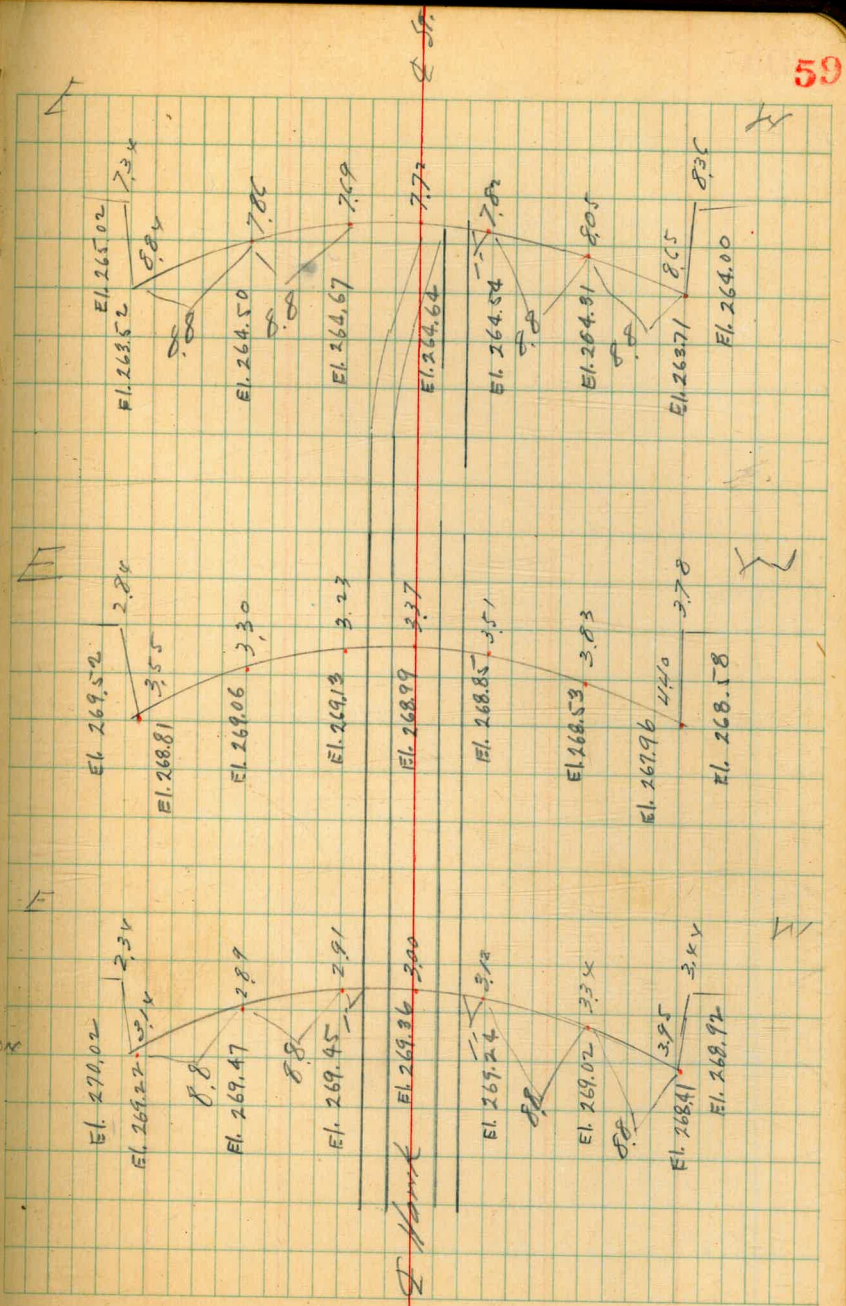 59
℄ St.
El. 265.02
7.34
El. 263.52
8.84
8.8
El. 264.50
7.86
8.8
El. 264.67
7.69
El. 264.64
7.72
El. 264.54
7.82
8.8
El. 264.31
8.05
8.8
El. 263.71
8.65
8.36
El. 264.00
E
El. 269.52
2.84
El. 268.81
3.55
El. 269.06
3.30
El. 269.13
3.23
El. 268.99
3.37
El. 268.85
3.51
El. 268.53
3.83
El. 267.96
4.40
3.78
El. 268.58
El. 270.02
2.34
El. 269.22
3.14
8.8
El. 269.47
2.89
8.8
El. 269.45
2.91
El. 269.36
3.00
El. 269.24
3.12
8.8
El. 269.02
3.34
8.8
El. 268.41
3.95
3.44
El. 268.92
℄ Hawk